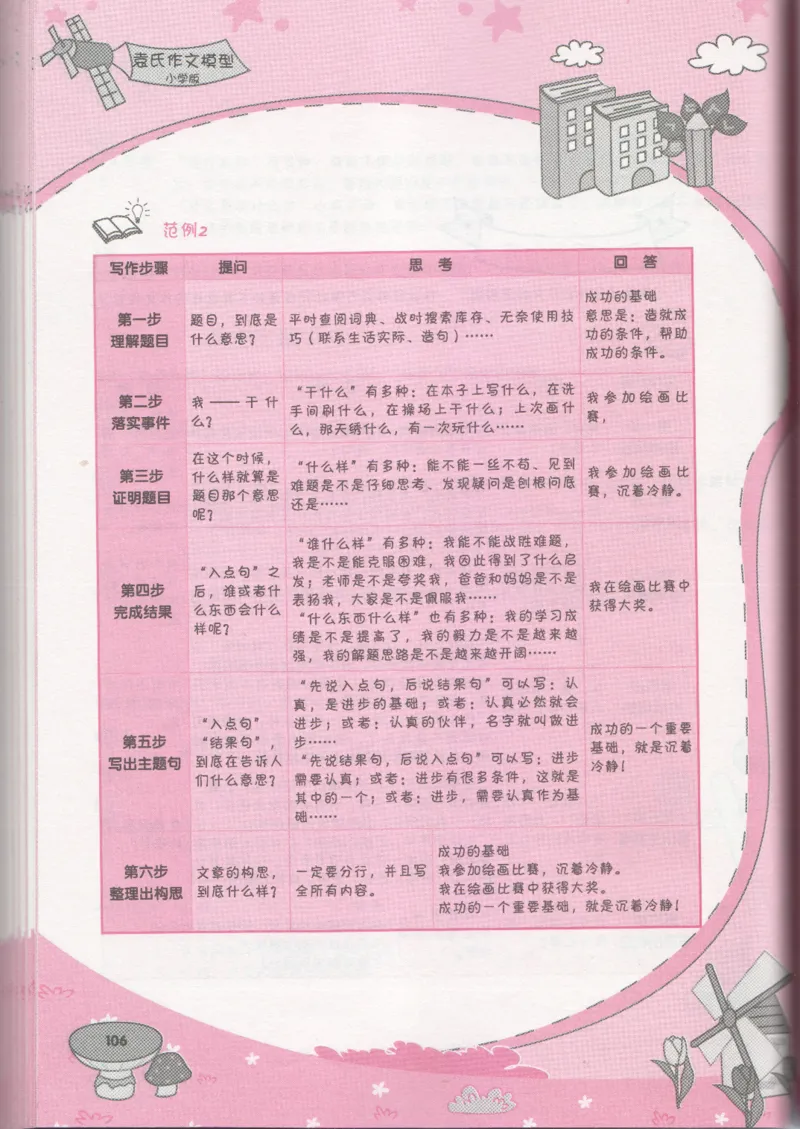 袁氏作文模型
小学版
范例2
写作步骤 提问 思考 回答
第一步
理解题目
题目，到底是
什么意思？
平时查阅词典、战时搜索库存、无奈使用技
巧（联系生活实际、造句）……
成功的基础
意思是：造就成
功的条件，帮助
成功的条件。
第二步
落实事件
我——干什
么？
“干什么”有多种：在本子上写什么，在洗
手间刷什么，在操场上干什么；上次画什
么，那天绣什么，有一次玩什么……
我参加绘画比
赛，
第三步
证明题目
在这个时候，
什么样就算是
题目那个意思
呢？
“什么样”有多种：能不能一丝不苟、见到
难题是不是仔细思考、发现疑问是刨根问底
还是……
我参加绘画比
赛，沉着冷静。
第四步
完成结果
“入点句”之
后，谁或者什
么东西会什么
样呢？
“谁什么样”有多种：我能不能战胜难题，
我是不是能克服困难，我因此得到了什么启
发；老师是不是夸奖我，爸爸和妈妈是不是
表扬我，大家是不是佩服我……
“什么东西什么样”也有多种：我的学习成
绩是不是提高了，我的毅力是不是越来越
强，我的解题思路是不是越来越开阔……
我在绘画比赛中
获得大奖。
第五步
写出主题句
“入点句”
“结果句”，
到底在告诉人
们什么意思？
“先说入点句，后说结果句”可以写：认
真，是进步的基础；或者：认真必然就会
进步；或者：认真的伙伴，名字就叫做进
步……
“先说结果句，后说入点句”可以写：进步
需要认真；或者：进步有很多条件，这就是
其中的一个；或者：进步，需要认真作为基
础……
成功的一个重要
基础，就是沉着
冷静！
第六步
整理出构思
文章的构思，
到底什么样？
一定要分行，并且写
全所有内容。
成功的基础
我参加绘画比赛，沉着冷静。
我在绘画比赛中获得大奖。
成功的一个重要基础，就是沉着冷静！
106